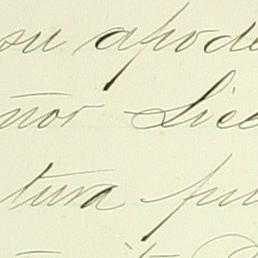 su apode
ñor Lice
tura pu